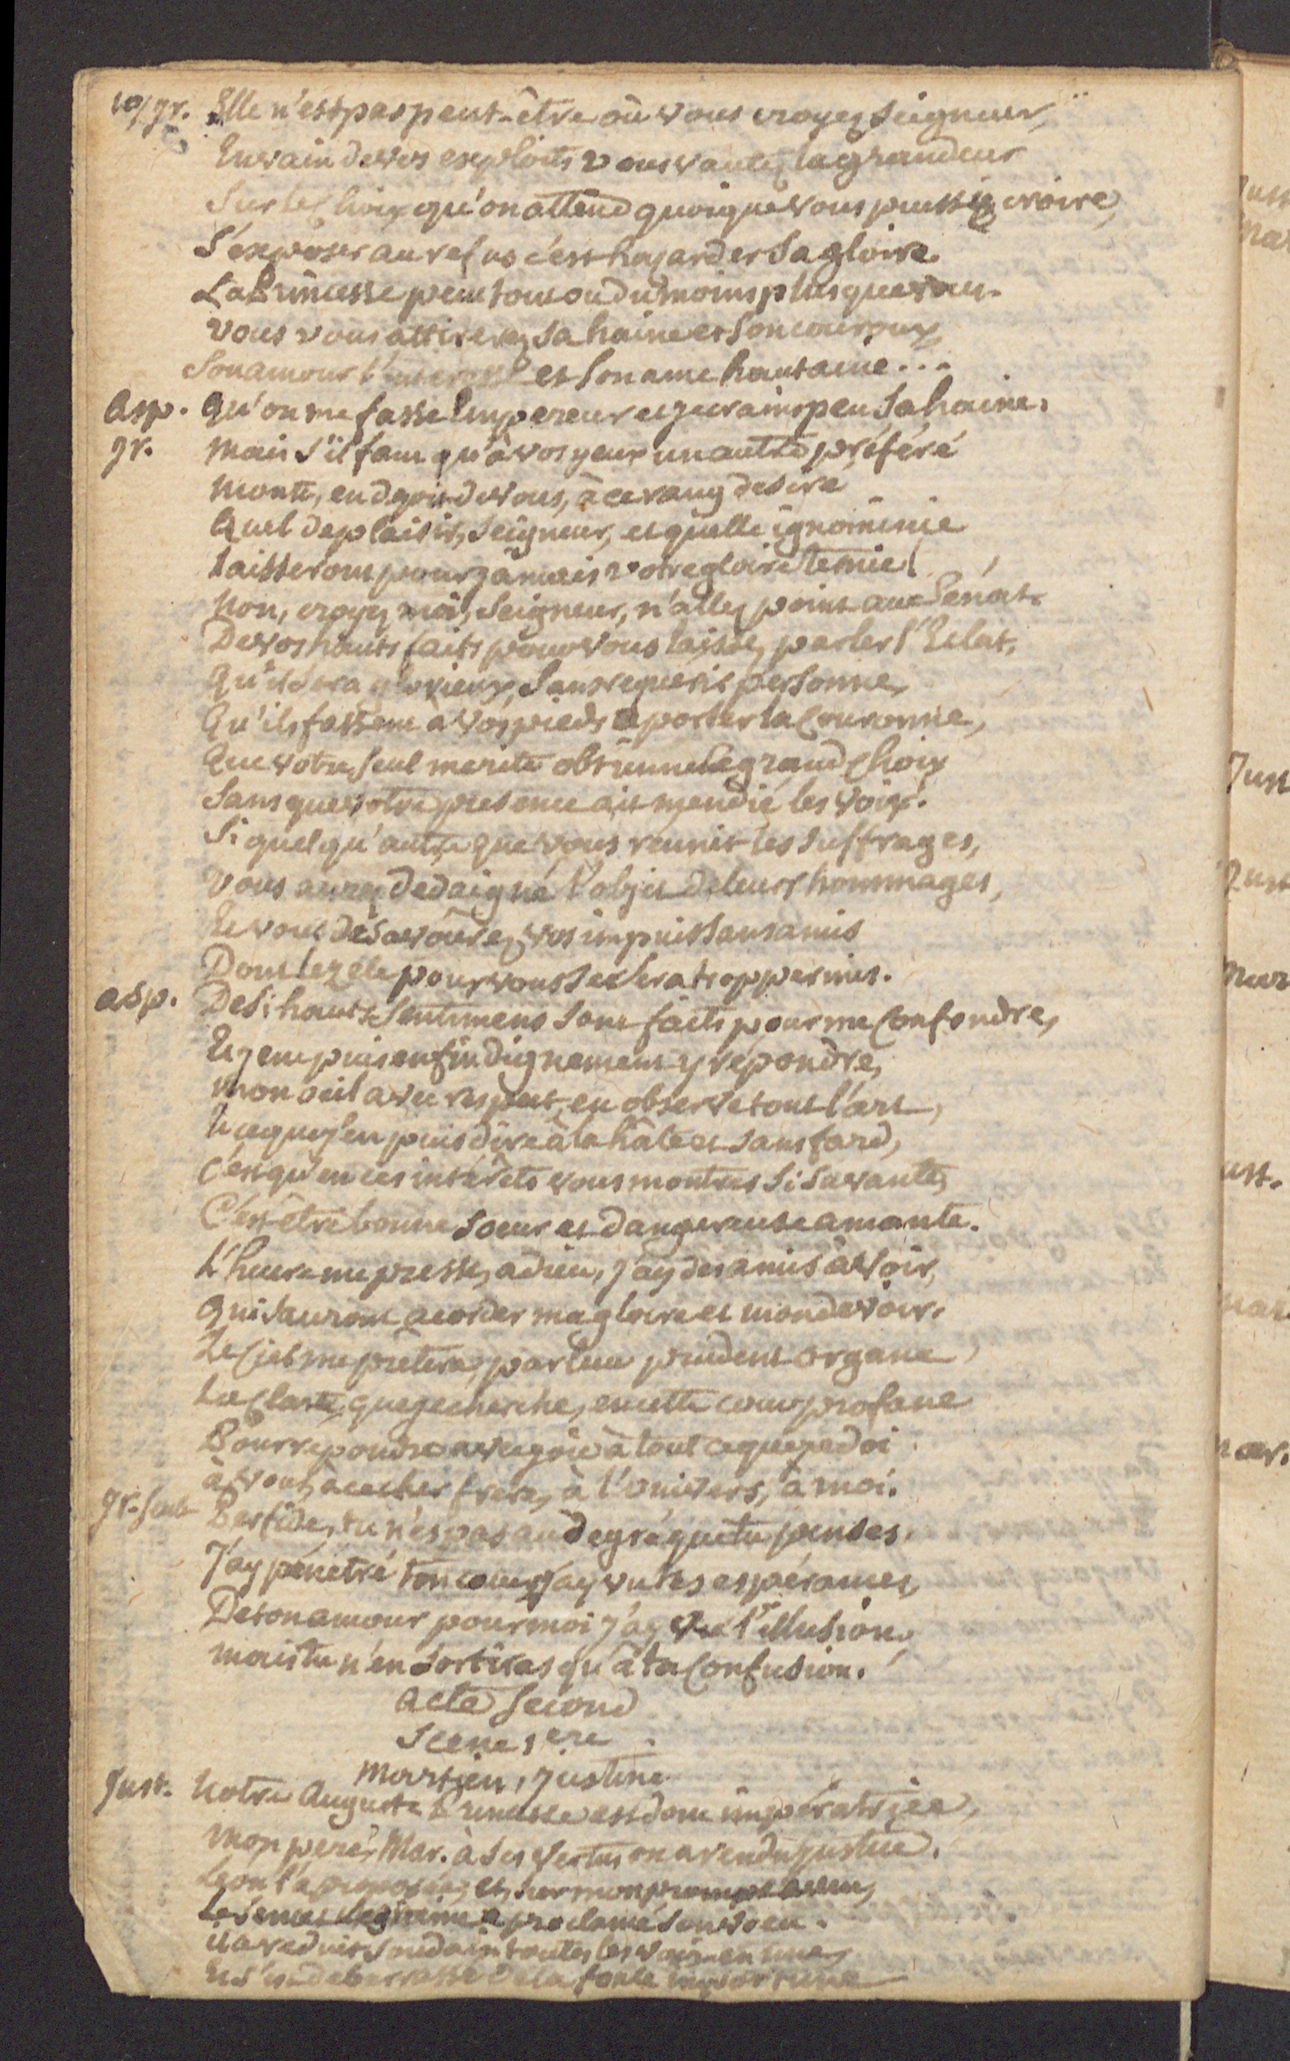 10/ Ir. Elle n'est pas peut-être où vous croyez Seigneur,
En vain de vos exploits vous vantez la grandeur
Sur le Choix qu'on attend quoique vous puissiez croire,
S'exposer au refus c'est hazarder Sa gloire.
La Princesse peut tout ou du moins plus que vous.
Vous vous attirerez Sa haine et Son couroux,
Son amour et Son ame hautaine...
Asp. Qu'on me fasse Empereur et je crains peu Sa haine.
Ir. Mais S'il faut qu'à vos yeux un autre préféré
Monte, en depit de vous, à ce rang desiré
Quel deplaisir, Seigneur, et quelle ignominie
Laisseront pour jamais votre gloire ternie!
Non, croyez moi, Seigneur, n'allez point au Sénat.
De vos hauts faits pour vous laissez parler l'Eclat,
Qu'il Sera glorieux, Sans requerir personne,
Qu'ils fassent à vos pieds aporter la Couronne,
Que votre Seul merite obtienne le grand Choix
Sans que votre presence ait mendié les voix.
Si quelqu'autre que vous reunit les Suffrages,
Vous aurez dedaigné l'objet de leurs hommages,
Et vous désavoüerez vos impuissans amis
Dont le zèle pour vous Se Sera trop permis.
asp. De Si hauts Sentimens Sont faits pour me Confondre,
Et je ne puis enfin dignement y repondre,
mon oeil avec respect en observe tout l'art,
Et ce que j'en puis dire à la hâte et Sans fard,
C'est qu'en ces intérêts vous montrer Si Savante,
C'est être bonne Soeur et dangereuse amante.
L'heure me presse, adieu, j'ay des amis à voir,
Qui Sauront acorder ma gloire et mon devoir.
Le Ciel me pretera, par leur prudent organe
La Clarté que je cherche, en cette cour profane
Pour repondre avec joie à tout ce que je doi
à vous, à ce cher frere, à l'univers, à moi.
Ir. Seule Perfide, tu n'es pas au degré que tu penses.
J'ay pénetré ton coeur, j'ay vu tes espérances,
De ton amour pour moi j'ay vu l'illusion,
mais tu n'en Sortiras qu'à ta Confusion.
Acte Second
Scene 1ere
Martien, Justine
Just. Notre Auguste Princesse est donc impératrice,
Mon pere, Mar. à Ses vertus on a rendu justice.
Leon l'a proposée, et Sur mon prompt aveu,
Le Senat a proclamé Son voeu.
il a reduit Soudain toutes les voix en une,
Et S'est debarrassé de la foule importune